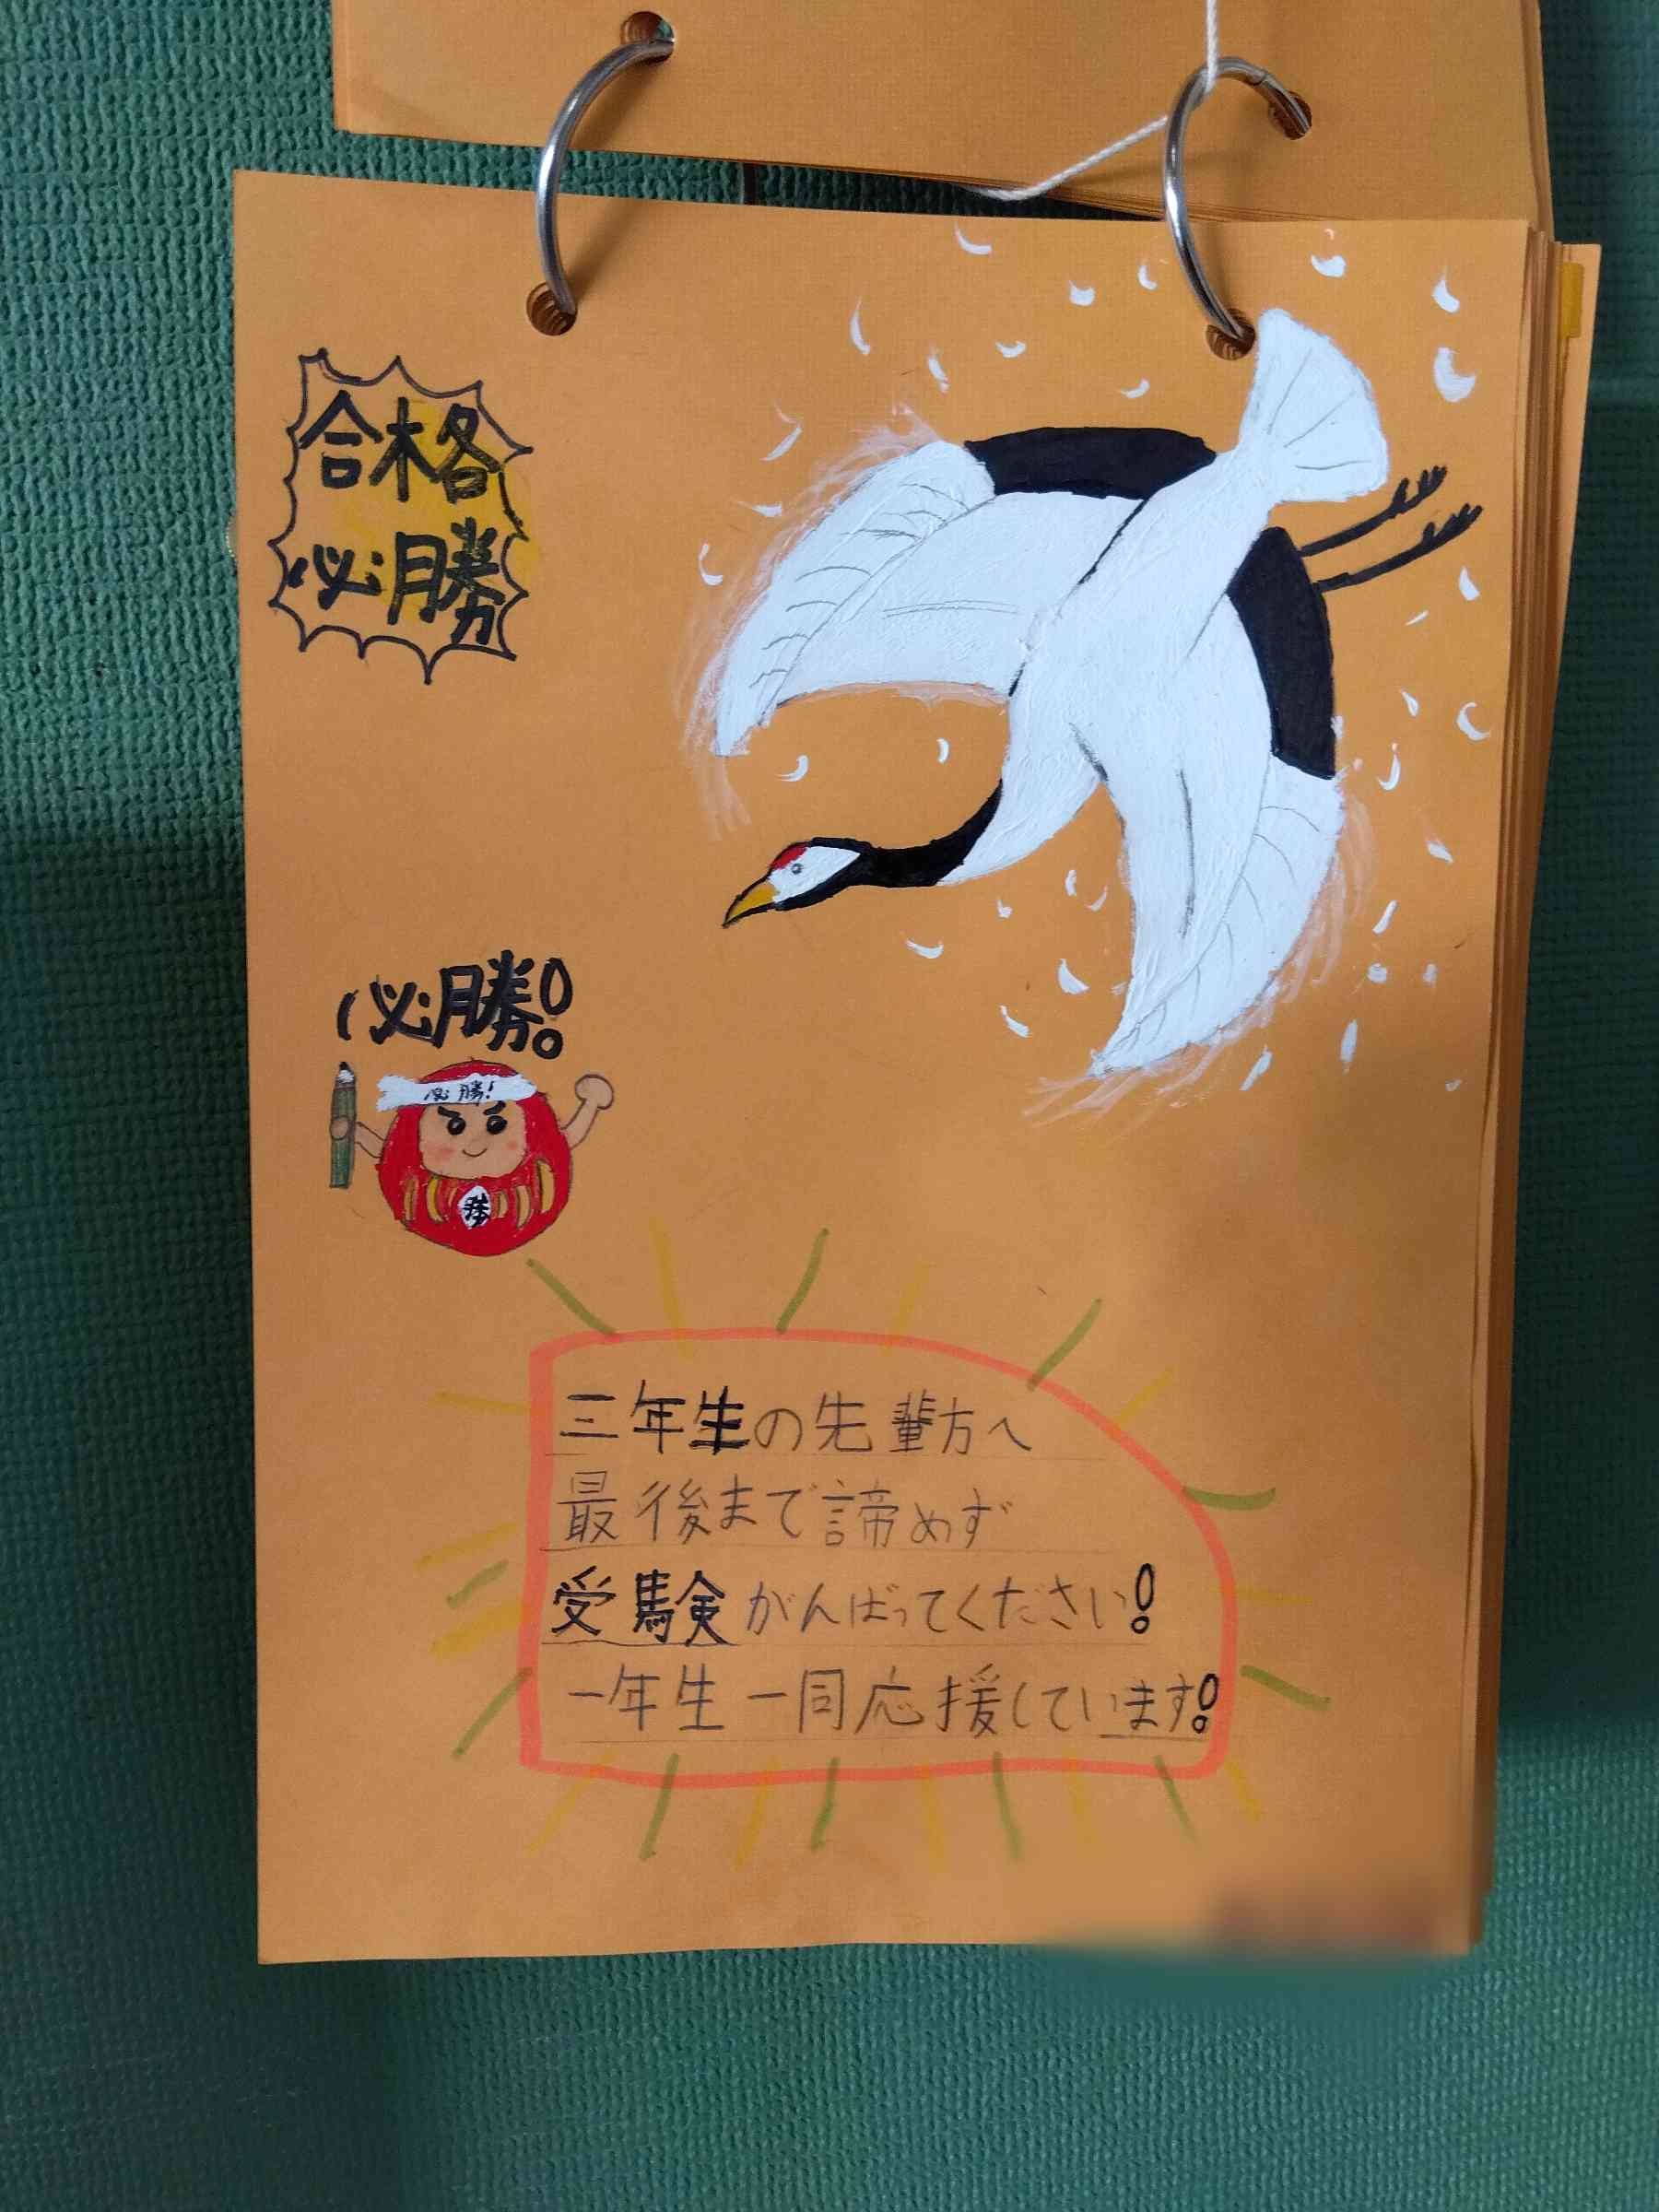 合格
必勝
必勝!
必勝!
勝
三年生の先輩方へ
最後まで諦めず
受験がんばってください!
一年生一同応援しています!